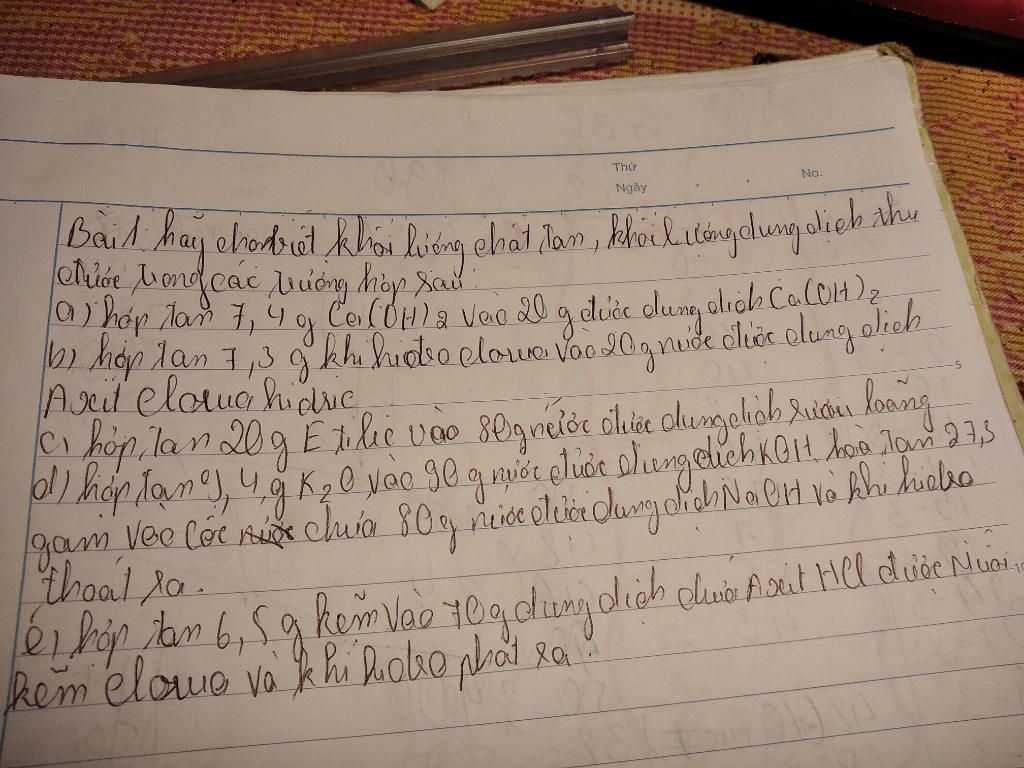 Thứ
Ngày
No.
Bài 1 hãy cho biết khối lượng chất tan, khối lượng dung dịch thu
được trong các trường hợp sau:
a) hóp tan 7,4 g Ca(OH)2 vào 20 g được dung dịch Ca(OH)2
b) hóp tan 7,3 g khí hidro clorua vào 20g nước được dung dịch
5
Axit clorua hidric
c) hóp tan 20g Etilic vào 80g nước được dung dịch rượu loãng
d) hóp tan 9,4 g K2O vào 90 g nước được dung dịch KOH hoà tan 27,3
gam vào cốc chứa 80g nước được dung dịch NaOH và khí hidro
thoát ra.
10
e) hóp tan 6,5g kẽm vào 70g dung dịch chứa Axit HCl được Muối
kẽm clorua và khí hidro phát ra.